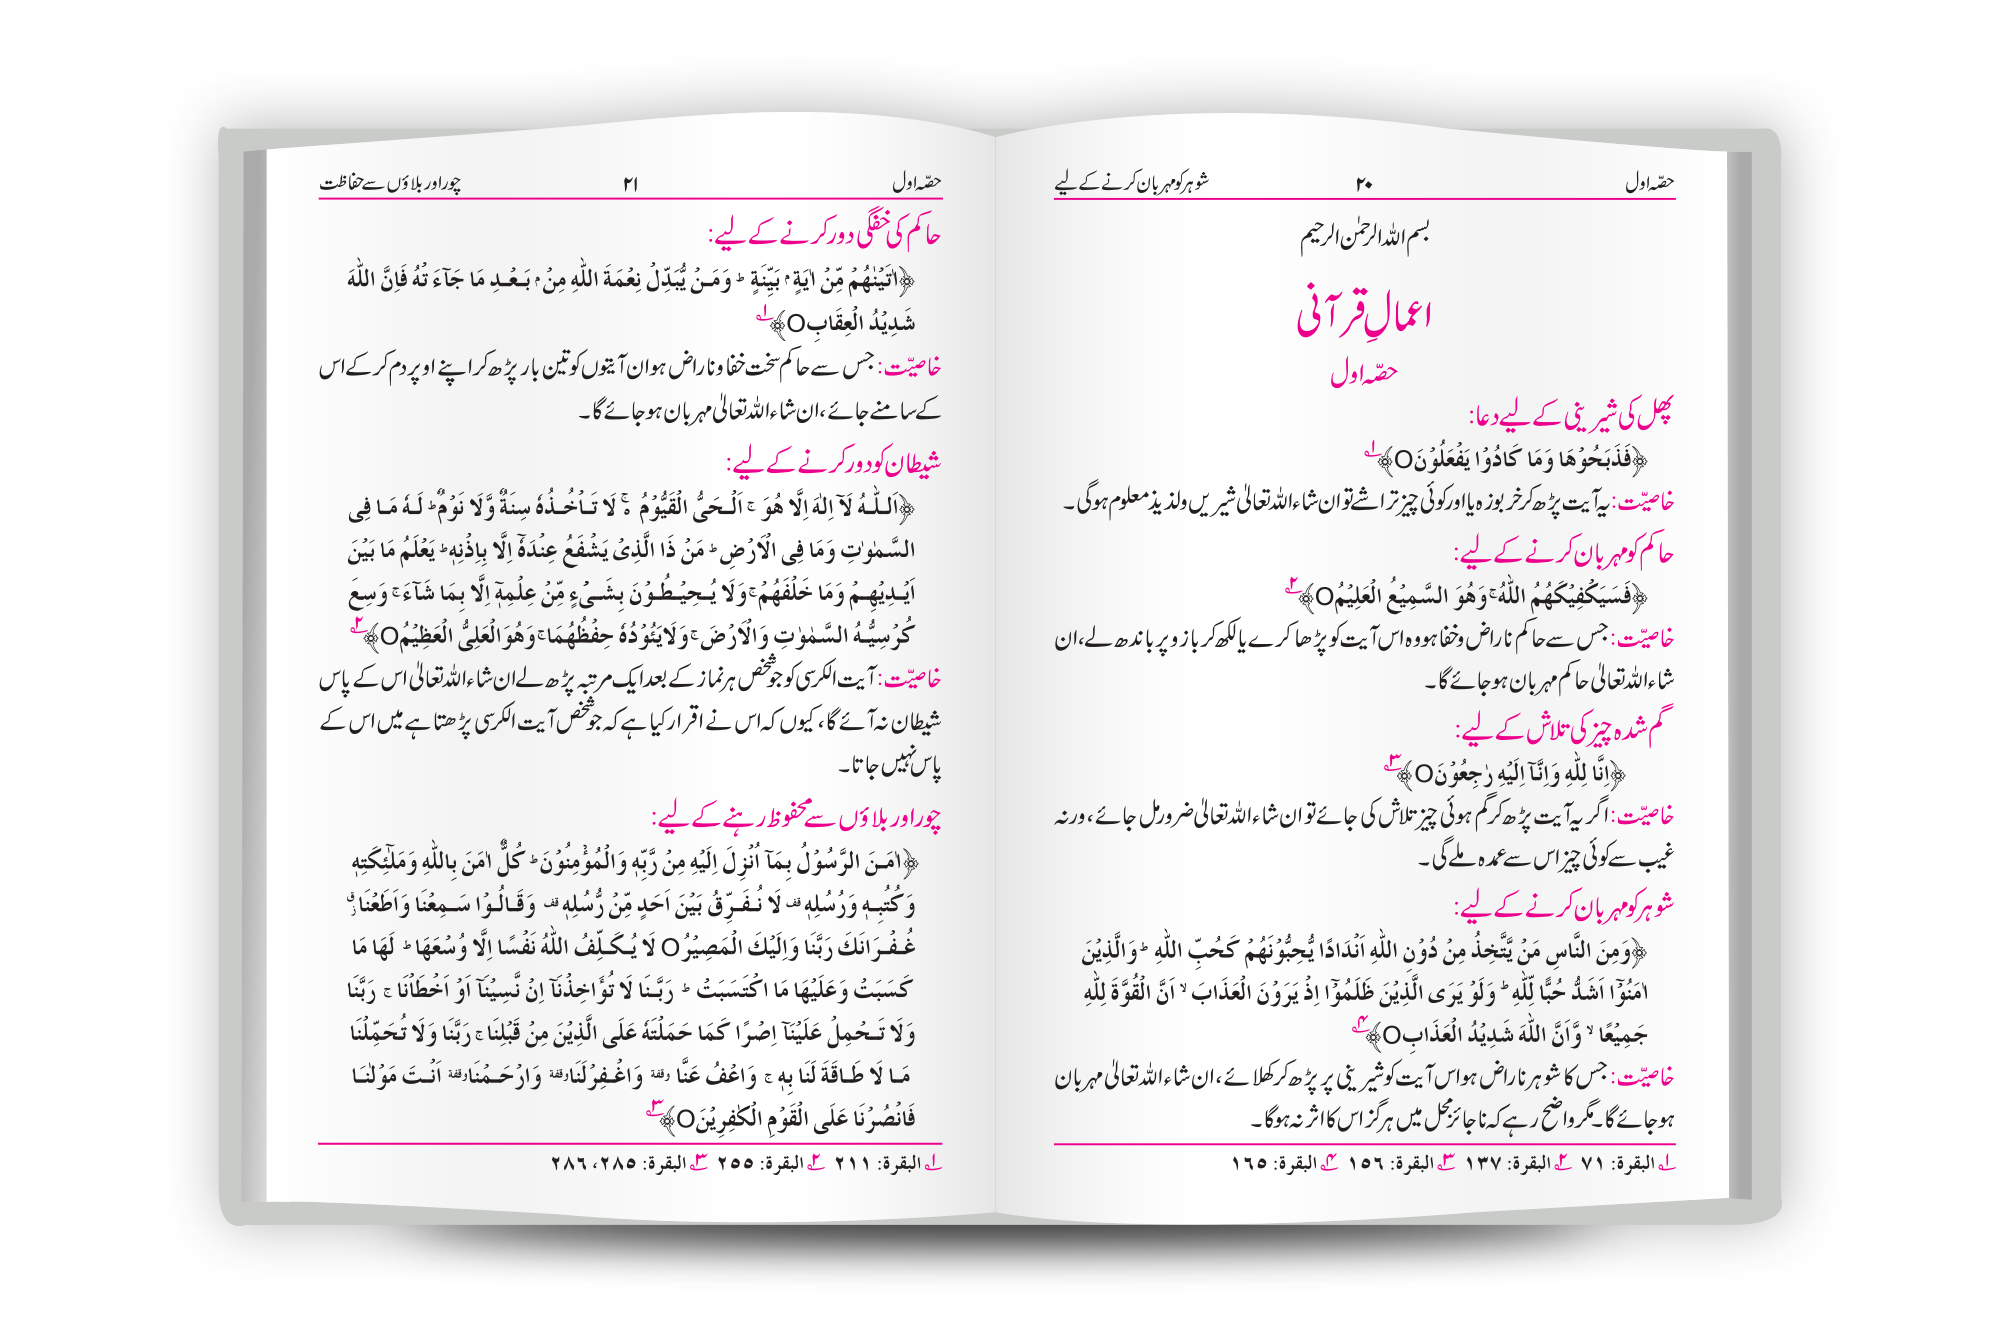 حصّہ اول ۲۰ شوہر کو مہربان کرنے کے لیے
بسم اللہ الرحمٰن الرحیم
اعمالِ قرآنی
حصّہ اول
پھل کی شیرینی کے لیے دعا:
﴿فَذَبَحُوْهَا وَمَا كَادُوْا يَفْعَلُوْنَO﴾ ۱؎
خاصیّت: یہ آیت پڑھ کر خربوزہ یا اور کوئی چیز تراشے تو ان شاء اللہ تعالیٰ شیریں ولذیذ معلوم ہوگی۔
حاکم کو مہربان کرنے کے لیے:
﴿فَسَيَكْفِيْكَهُمُ اللّٰهُ ۚ وَهُوَ السَّمِيْعُ الْعَلِيْمُO﴾ ۲؎
خاصیّت: جس سے حاکم ناراض وخفا ہو وہ اس آیت کو پڑھا کرے یا لکھ کر بازو پر باندھ لے، ان
شاء اللہ تعالیٰ حاکم مہربان ہوجائے گا۔
گم شدہ چیز کی تلاش کے لیے:
﴿اِنَّا لِلّٰهِ وَاِنَّآ اِلَيْهِ رٰجِعُوْنَO﴾ ۳؎
خاصیّت: اگر یہ آیت پڑھ کر گم ہوئی چیز تلاش کی جائے تو ان شاء اللہ تعالیٰ ضرور مل جائے، ورنہ
غیب سے کوئی چیز اس سے عمدہ ملے گی۔
شوہر کو مہربان کرنے کے لیے:
﴿وَمِنَ النَّاسِ مَنْ يَّتَّخِذُ مِنْ دُوْنِ اللّٰهِ اَنْدَادًا يُّحِبُّوْنَهُمْ كَحُبِّ اللّٰهِ ؕ وَالَّذِيْنَ
اٰمَنُوْٓا اَشَدُّ حُبًّا لِّلّٰهِ ؕ وَلَوْ يَرَى الَّذِيْنَ ظَلَمُوْٓا اِذْ يَرَوْنَ الْعَذَابَ ۙ اَنَّ الْقُوَّةَ لِلّٰهِ
جَمِيْعًا ۙ وَّاَنَّ اللّٰهَ شَدِيْدُ الْعَذَابِO﴾ ۴؎
خاصیّت: جس کا شوہر ناراض ہو اس آیت کو شیرینی پر پڑھ کر کھلائے، ان شاء اللہ تعالیٰ مہربان
ہوجائے گا۔ مگر واضح رہے کہ ناجائز محل میں ہرگز اس کا اثر نہ ہوگا۔
۱؎ البقرة: ۷۱ ۲؎ البقرة: ۱۳۷ ۳؎ البقرة: ۱۵۶ ۴؎ البقرة: ۱۶۵
حصّہ اول ۲۱ چور اور بلاؤں سے حفاظت
حاکم کی خفگی دور کرنے کے لیے:
﴿اٰتَيْنٰهُمْ مِّنْ اٰيَةٍۢ بَيِّنَةٍ ؕ وَمَنْ يُّبَدِّلْ نِعْمَةَ اللّٰهِ مِنْۢ بَعْدِ مَا جَآءَ تْهُ فَاِنَّ اللّٰهَ
شَدِيْدُ الْعِقَابِO﴾ ۱؎
خاصیّت: جس سے حاکم سخت خفا وناراض ہو ان آیتوں کو تین بار پڑھ کر اپنے اوپر دم کر کے اس
کے سامنے جائے، ان شاء اللہ تعالیٰ مہربان ہوجائے گا۔
شیطان کو دور کرنے کے لیے:
﴿اَللّٰهُ لَآ اِلٰهَ اِلَّا هُوَ ۚ اَلْحَىُّ الْقَيُّوْمُ ۬ۚ لَا تَاْخُذُهٗ سِنَةٌ وَّلَا نَوْمٌ ؕ لَهٗ مَا فِى
السَّمٰوٰتِ وَمَا فِى الْاَرْضِ ؕ مَنْ ذَا الَّذِىْ يَشْفَعُ عِنْدَهٗٓ اِلَّا بِاِذْنِهٖ ؕ يَعْلَمُ مَا بَيْنَ
اَيْدِيْهِمْ وَمَا خَلْفَهُمْ ۚ وَلَا يُحِيْطُوْنَ بِشَىْءٍ مِّنْ عِلْمِهٖٓ اِلَّا بِمَا شَآءَ ۚ وَسِعَ
كُرْسِيُّهُ السَّمٰوٰتِ وَالْاَرْضَ ۚ وَلَا يَئُوْدُهٗ حِفْظُهُمَا ۚ وَهُوَ الْعَلِىُّ الْعَظِيْمُO﴾ ۲؎
خاصیّت: آیت الکرسی کو جو شخص ہر نماز کے بعد ایک مرتبہ پڑھ لے ان شاء اللہ تعالیٰ اس کے پاس
شیطان نہ آئے گا، کیوں کہ اس نے اقرار کیا ہے کہ جو شخص آیت الکرسی پڑھتا ہے میں اس کے
پاس نہیں جاتا۔
چور اور بلاؤں سے محفوظ رہنے کے لیے:
﴿اٰمَنَ الرَّسُوْلُ بِمَآ اُنْزِلَ اِلَيْهِ مِنْ رَّبِّهٖ وَالْمُؤْمِنُوْنَ ؕ كُلٌّ اٰمَنَ بِاللّٰهِ وَمَلٰٓئِكَتِهٖ
وَكُتُبِهٖ وَرُسُلِهٖ قف لَا نُفَرِّقُ بَيْنَ اَحَدٍ مِّنْ رُّسُلِهٖ قف وَقَالُوْا سَمِعْنَا وَاَطَعْنَا ق ز
غُفْرَانَكَ رَبَّنَا وَاِلَيْكَ الْمَصِيْرُO لَا يُكَلِّفُ اللّٰهُ نَفْسًا اِلَّا وُسْعَهَا ؕ لَهَا مَا
كَسَبَتْ وَعَلَيْهَا مَا اكْتَسَبَتْ ؕ رَبَّنَا لَا تُؤَاخِذْنَآ اِنْ نَّسِيْنَآ اَوْ اَخْطَاْنَا ۚ رَبَّنَا
وَلَا تَحْمِلْ عَلَيْنَآ اِصْرًا كَمَا حَمَلْتَهٗ عَلَى الَّذِيْنَ مِنْ قَبْلِنَا ۚ رَبَّنَا وَلَا تُحَمِّلْنَا
مَا لَا طَاقَةَ لَنَا بِهٖ ۚ وَاعْفُ عَنَّا وقفة وَاغْفِرْلَنَا وقفة وَارْحَمْنَا وقفة اَنْتَ مَوْلٰنَا
فَانْصُرْنَا عَلَى الْقَوْمِ الْكٰفِرِيْنَO﴾ ۳؎
۱؎ البقرة: ۲۱۱ ۲؎ البقرة: ۲۵۵ ۳؎ البقرة: ۲۸۵، ۲۸۶